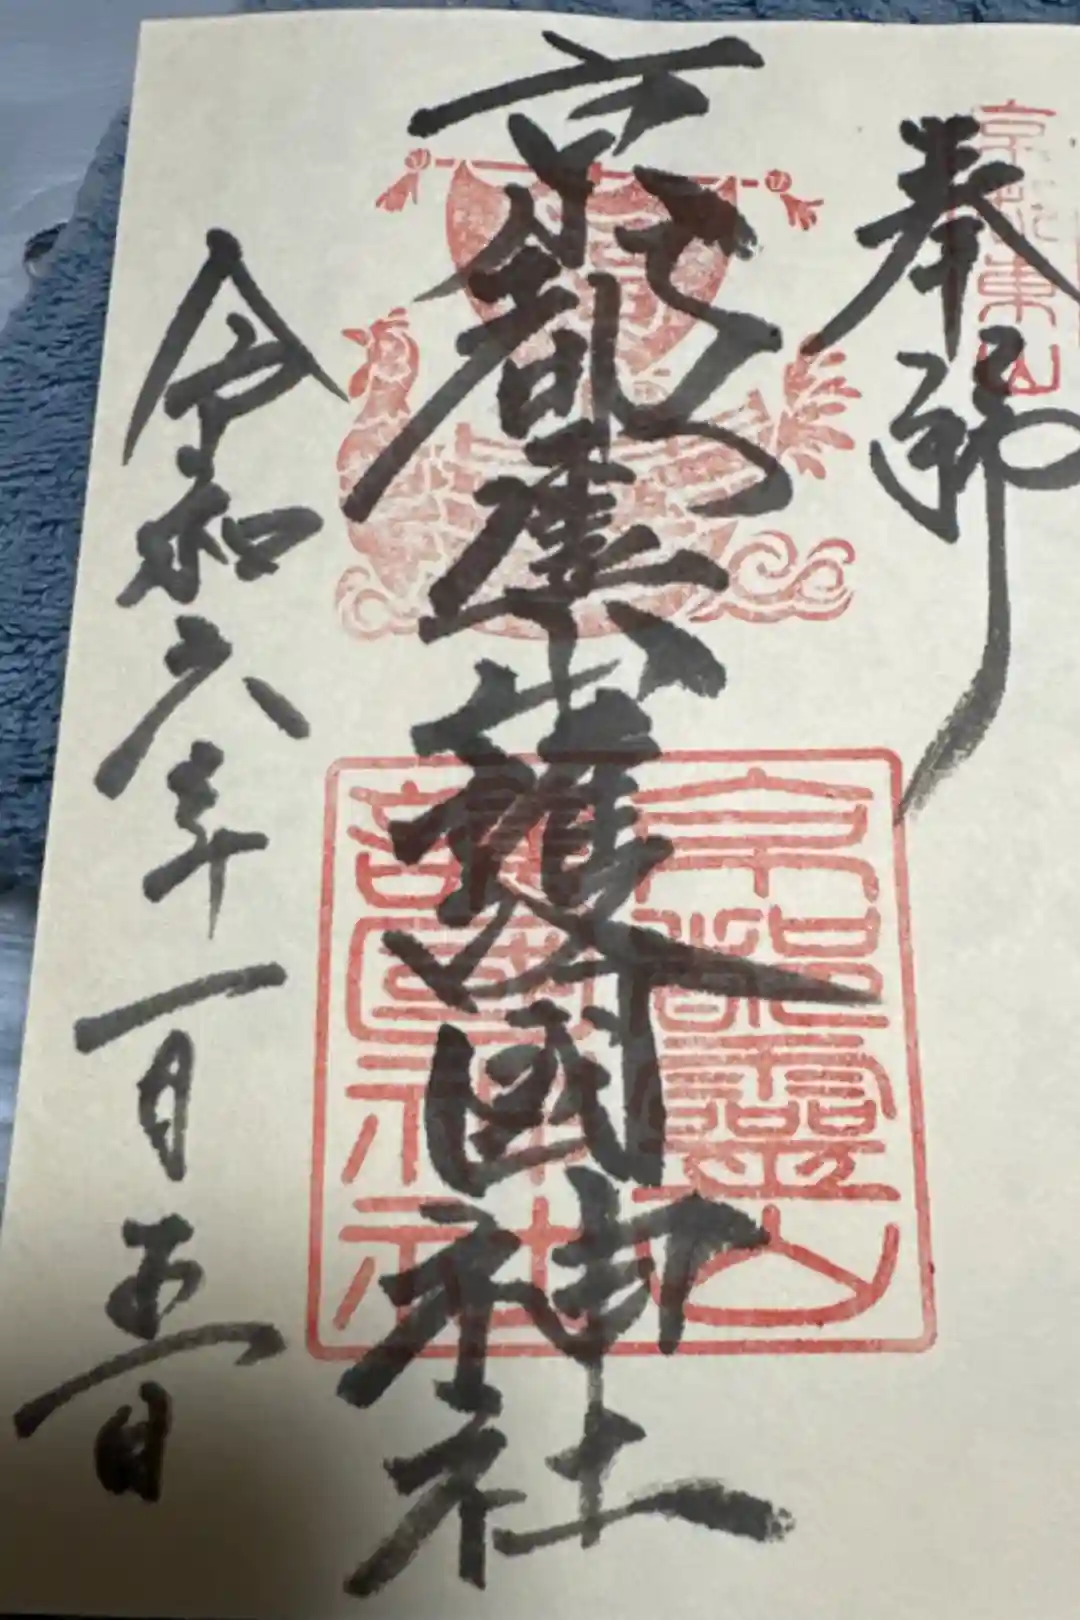 京都東山
奉拝
京都霊山護國神社
京都靈山
護國神社
令和六年一月五日